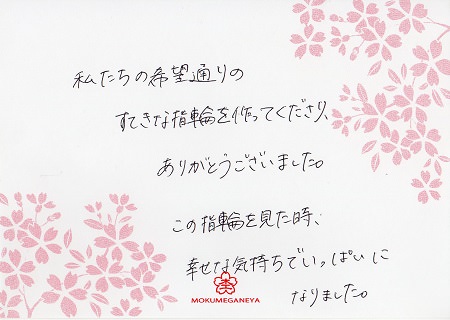 私たちの希望通りの
すてきな指輪を作ってくださり、
ありがとうございました。
この指輪を見た時、
幸せな気持ちでいっぱいに
なりました。
MOKUMEGANEYA